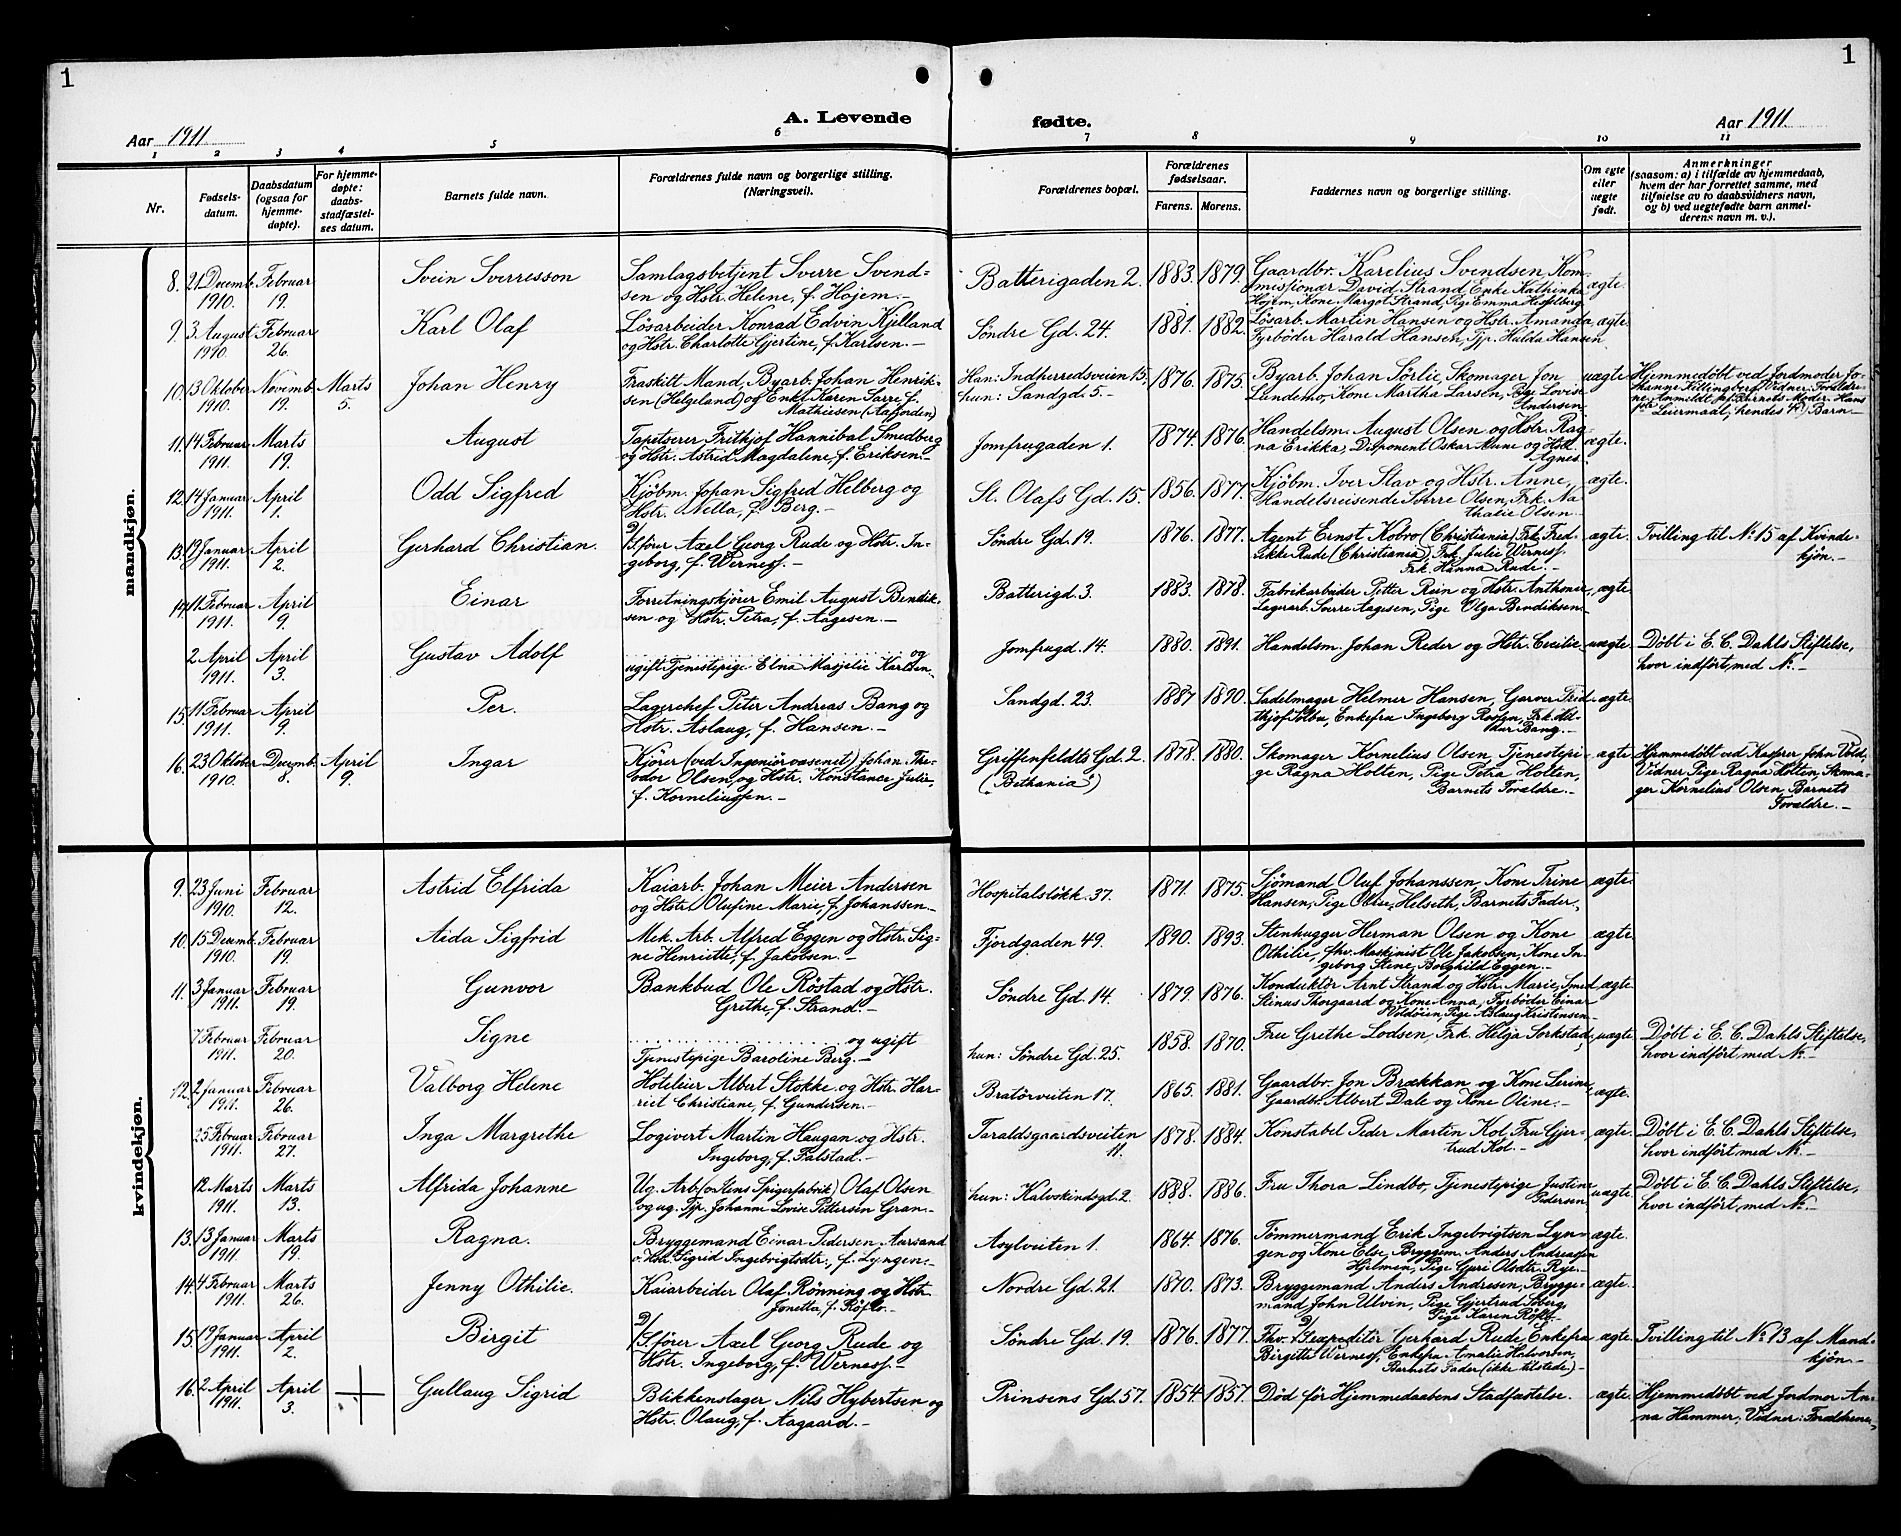 1
1
A. Levende
fødte.
Aar 1911.
Aar 1911.
1 2 3 4 5 6 7 8 9 10 11
Nr.
Fødsels-
datum.
Daabsdatum
(ogsaa for
hjemme-
døpte).
For hjemme-
døpte:
daabs-
stadfæstel-
ses datum.
Barnets fulde navn.
Forældrenes fulde navn og borgerlige stilling.
(Næringsvei).
Forældrenes bopæl.
Forældrenes
fødselsaar.
Farens. Morens.
Faddernes navn og borgerlige stilling.
Om egte
eller
uegte
født.
Anmerkninger
(saasom: a) i tilfælde av hjemmedaab,
hvem der har forrettet samme, med
tilføielse av to daabsvidners navn,
og b) ved uegtefødte barn anmel-
derens navn m. v.).
mandkjøn.
8. 21 Decemb.
1910.
Februar
19.
Svein Sverresson
Samlagsbetjent Sverre Svend-
sen og Hstr. Helene, f. Hojem.-
Batterigaden 2. 1883. 1879.
Gaardbr. Karelius Svendsen, Kom-
missionær David Strand, Enke Kathinka
Hojem, Kone Margot Strand, Pige Emma Hesselberg
ægte.
9. 3 August
1910.
Februar
26.
Karl Olaf
Løsarbeider Konrad Edvin Kjilland
og Hstr. Charlotte Gjertine, f. Karlsen.-
Søndre Gd. 24. 1881. 1882.
Løsarb. Martin Hansen og Hstr. Amanda,
Fyrbøder Harald Hansen, Tjp. Hulda Hansen
ægte.
10. 13 Oktober
1910.
Novemb.
19.
Marts
5.
Johan Henry
Fraskilt Mand, Byarb. Johan Henrik-
sen (Helgeland) og Enke Karen Tarre, f.
Mathiesen (Aafjorden)
Han: Indherredsveien 15.
hun: Sandgd. 5.- 1876. 1875.
Byarb. Johan Sørlie, Skomager Jon
Lundemo, Kone Martha Larsen, Pige Lovise
Andersen
uægte
Hjemmedøbt ved Jordmoder Jo-
hanne Killingberg, Vidner: Foreldre-
ne. Anmeldt af Barnets Moder. Hans
Leiermaal, hendes 4de Barn-
11. 14 Februar
1911.
Marts
19.
August
Tapetserer Frithjof Hannibal Smedberg
og Hstr. Astrid Magdalene, f. Eriksen.-
Jomfrugaden 1. 1874. 1876.
Handelsm. August Olsen og Hstr. Rag-
na Erikka, Disponent Oskar Alune og Hstr.
Agnes.
ægte.
12. 14 Januar
1911.
April
1.
Odd Sigfred
Kjøbm. Johan Sigfred Helberg og
Hstr. Nella, f. Berg.-
St. Olafs Gd. 15. 1856. 1877.
Kjøbm. Iver Slav og Hstr. Anne,
Handelsreisende Sverre Olsen, Frk. Na
thalie Olsen.-
ægte.
13. 19 Januar
1911.
April
2.
Gerhard Christian.
S/fører Axel Georg Rude og Hstr. In-
geborg, f. Werness.-
Søndre Gd. 19. 1876. 1877.
Agent Ernst Kobro (Christiania) Frk. Fred-
rikke Rude (Christiania), Frk. Julie Werness,
Frk. Hanna Rude.-
ægte.
Tvilling til No 15 af Kvinde-
kjøn.-
14. 11 Februar
1911.
April
9.
Einar
Forretningskjører Emil August Bendik-
sen og Hstr. Petra, f. Aagesen.-
Batterigd. 3. 1883. 1878.
Fabrikarbeider Petter Rein og Hstr. Anthonie,
Lagerarb. Sverre Aagesen, Pige Olga Bendiksen
ægte.
2 April
1911.
April
3.
Gustav Adolf
og
ugift Tjenestepige Elna Masjelie Karlsen.
Jomfrugd. 14. 1880. 1891.
Handelsm. Johan Reder og Hstr. Cecilie
uægte.
Døbt i E. C. Dahls Stiftelse,
hvor indført, med No.-
15. 11 Februar
1911.
April
9.
Per.
Lagerchef Peter Andreas Bang og
Hstr. Aslaug, f. Hansen.-
Sandgd. 23. 1887 1890.
Sadelmager Helmer Hansen, Garver Frid
thjof Solbu, Enkefru Ingeborg Rosten, Frk. Hil-
dur Bang.-
ægte.
16. 23 Oktober
1910.
Decemb.
8.
April
9.
Ingar
Kjører (ved Ingeniørvæsenet) Johan The-
odor Olsen og Hstr. Konstance Julie,
f. Korneliussen.-
Griffenfeldts Gd. 2.
(Bethania) 1878. 1880.
Skomager Kornelius Olsen, Tjenestepi-
ge Ragna Holten, Pige Petra Holten,
Barnets Forældre.-
ægte
Hjemmedøbt ved Kasserer John Vold,
Vidner Pige Ragna Holten, Skoma-
ger Kornelius Olsen, Barnets
Forældre.-
kvindekjøn.
9. 23 Juni
1910.
Februar
12.
Astrid Elfrida
Kaiarb. Johan Meier Andersen
og Hstr. Olufine Marie, f. Johanssen.-
Hospitalsløkk. 37. 1871. 1875.
Sjömand Oluf Johanssen, Kone Trine
Hansen, Pige Olise Helseth, Barnets Fader,
ægte.
10. 15 Decemb.
1910.
Februar
19.
Aida Sigfrid
Mek. Arb. Alfred Eggen og Hstr. Sig-
ne Henriette, f. Jakobsen.-
Fjordgaden 49. 1890. 1893.
Stenhugger Herman Olsen og Kone
Othilie, fhv. Maskinist Ole Jakobsen, Kone In-
geborg Stene, Borghild Eggen.-
ægte
11. 3 Januar
1911.
Februar
19.
Gunvor
Bankbud Ole Röstad og Hstr.
Grethe, f. Strand.-
Søndre Gd. 14. 1879. 1876.
Konduktör Arnt Strand og Hstr. Marie, Smed
Stinus Thorgaard og Kone Anna, Fyrbøder Einar
Voldöien, Pige Aslaug Kristensen.
ægte
7 Februar
1911.
Februar
20.
Signe
og ugift
Tjenestepige Baroline Berg.-
hun: Søndre Gd. 25. 1858. 1870.
Fru Grethe Lodsen, Frk. Helga Sorkstad,
uægte.
Døbt i E. C. Dahls Stiftelse,
hvor indført, med No.-
12. 2 Januar
1911.
Februar
26.
Valborg Helene
Hoteleier Albert Stokke og Hstr. Har-
riet Christiane, f. Gundersen.-
Bratörveiten 17. 1865. 1881.
Gaardbr. Jon Brækkan og Kone Serine,
Gaardbr. Albert Dale og Kone Oline.-
ægte.
25 Februar
1911.
Februar
27.
Inga Margrethe
Logivert Martin Haugan og Hstr.
Ingeborg, f. Falstad.-
Taraldsgaardsveiten
11. 1878. 1884.
Konstabel Peder Martin Kol, Fru Gjer-
trud Kol.-
ægte.
Døbt i E. C. Dahls Stiftelse,
hvor indført med No.-
12 Marts
1911.
Marts
13.
Alfrida Johanne
Ug. Arb. (ov. Jens Spigerfabrik) Olaf Olsen
og ug. Tjp. Johanne Lovise Pettersen Gran.-
hun: Kalvskindsgd. 2. 1888. 1886.
Fru Thora Lindbo, Tjenestepige Justine
Pedersen
uægte
Døbt i E. C. Dahls Stiftelse,
hvor indført, med No.-
13. 13 Januar
1911.
Marts
19.
Ragna.
Bryggemand Einar Pedersen Aarsand
o. Hstr. Sigrid Ingebrigtsdtr., f. Lyngen.-
Asylveiten 1. 1864. 1876.
Tømmermand Erik Ingebrigtsen Lyn-
gen og Kone Else, Bryggem. Anders Andreassen
Hjelmen, Pige Guri Olsdtr. Rye-
ægte.
14. 4 Februar
1911.
Marts
26.
Jenny Othilie.
Kaiarbeider Olaf Rønning og Hstr.
Jonetta, f. Röflo.-
Nordre Gd. 21. 1870. 1873.
Bryggemand Anders Andresen, Brygge-
mand John Ulvin, Pige Gjertrud Soberg,
Pige Karen Röflo.
ægte.
15. 19 Januar
1911.
April
2.
Birgit
S/fører Axel Georg Rude og
Hstr. Ingeborg, f. Werness.-
Søndre Gd. 19. 1876. 1877.
Fhv. S/expeditör Gerhard Rude, Enkefru
Birgitte Werness, Enkefru Amalie Halvorsen,
Barnets Fader (ikke tilstede)-
ægte.
Tvilling til No 13 af Mand-
kjøn.-
16. 2 April
1911.
April
3.
Gullaug Sigrid
Blikkenslager Nils Hybertsen og
Hstr. Olaug, f. Aagaard.-
Prinsens Gd. 57. 1854. 1857.
Død før Hjemmedaabens Stadfæstelse.
ægte.
Hjemmedøbt ved Jordmor An-
na Hammer, Vidner: Forældrene,